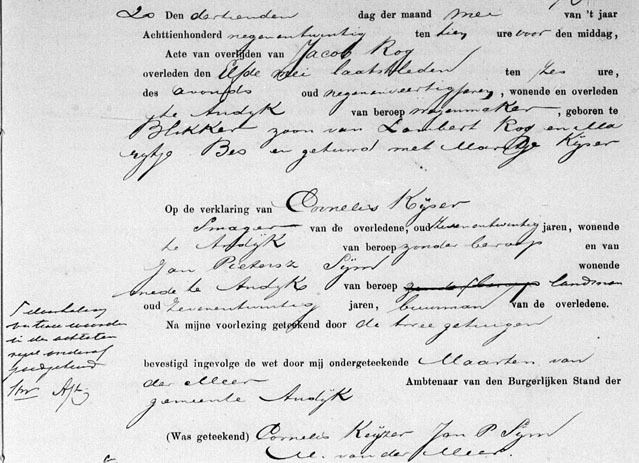 20 Den dertienden dag der maand mei van 't jaar
Achttienhonderd negenentwintig ten tien ure voor den middag,
Acte van overlijden van Jacob Rog
overleden den Elfde mei laatstleden ten zes ure,
des avonds oud negenenveertig jaren, wonende en overleden
te Andyk van beroep wagenmaker, geboren te
Blokker zoon van Lambert Rog en Ma
rytje Bes en gehuwd met Martje Kijser
Op de verklaring van Cornelis Kijser
Smager van de overledene, oud zevenentwintig jaren, wonende
te Andijk van beroep zonder beroep en van
Jan Pietersz Sijm wonende
mede te Andyk van beroep zonder beroep landman
oud zevenentwintig jaren, buurman van de overledene.
Na mijne voorlezing geteekend door de twee getuigen
bevestigd ingevolge de wet door mij ondergeteekende Maarten van
der Meer Ambtenaar van den Burgerlijken Stand der
gemeente Andijk
(Was geteekend) Cornelis Keyzer Jan P Sijm
M. van der Meer.
woorden
in de achtsten
regel
goedgekeurd